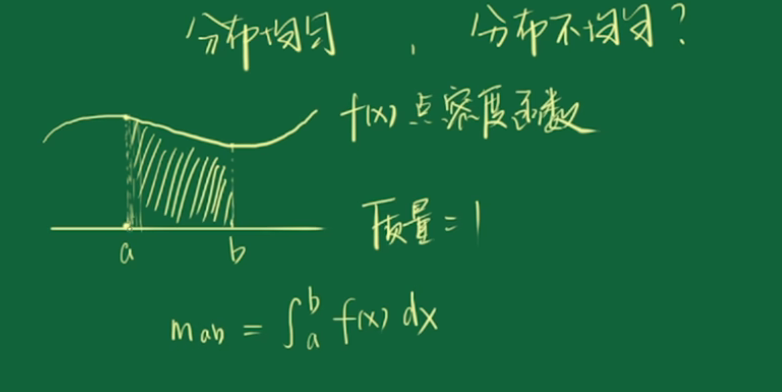 分布均匀 , 分布不均匀?
f(x) 点密度函数
a b
质量 = 1
m_ab = ∫_a^b f(x) dx